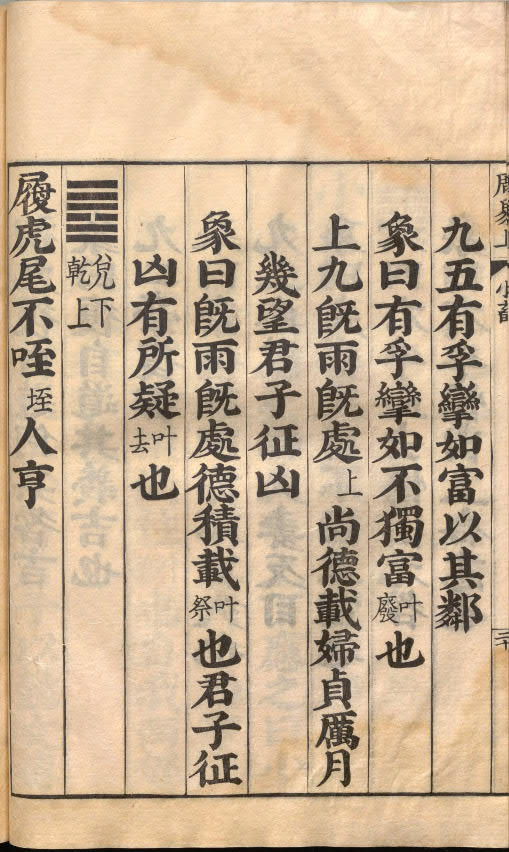 周易上 小畜
九五有孚攣如富以其鄰
象曰有孚攣如不獨富叶廢也
上九旣雨旣處上尚德載婦貞厲月
幾望君子征凶
象曰旣雨旣處德積載叶祭也君子征
凶有所疑叶去也
兌下乾上
履虎尾不咥垤人亨